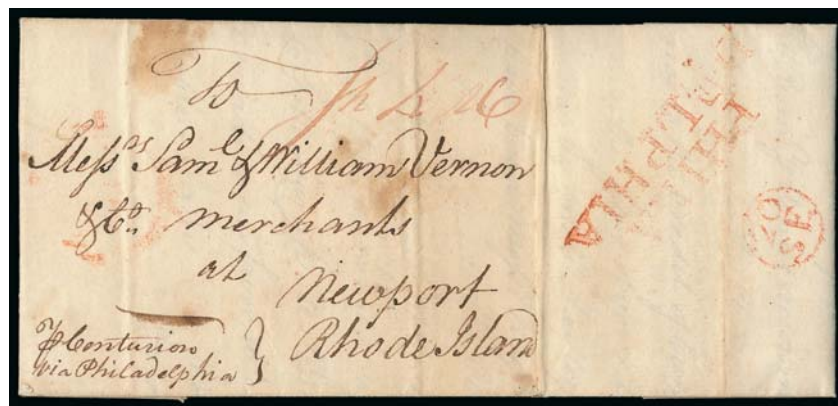 To
Sh
Mess.rs Sam.l & William Vernon
& Co. Merchants
at
Newport
Rhode Island
⅌ Centurion
via Philadelphia
PHILA
DELPHIA
20
SE